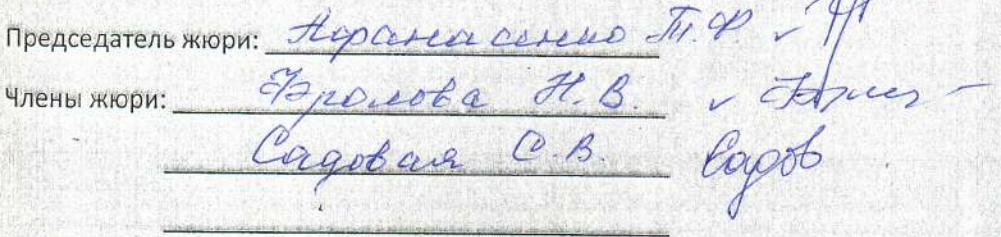 Председатель жюри: Афанасенко Т.Ф.
Члены жюри: Фролова Н.В.
Садовая С.В. Садов